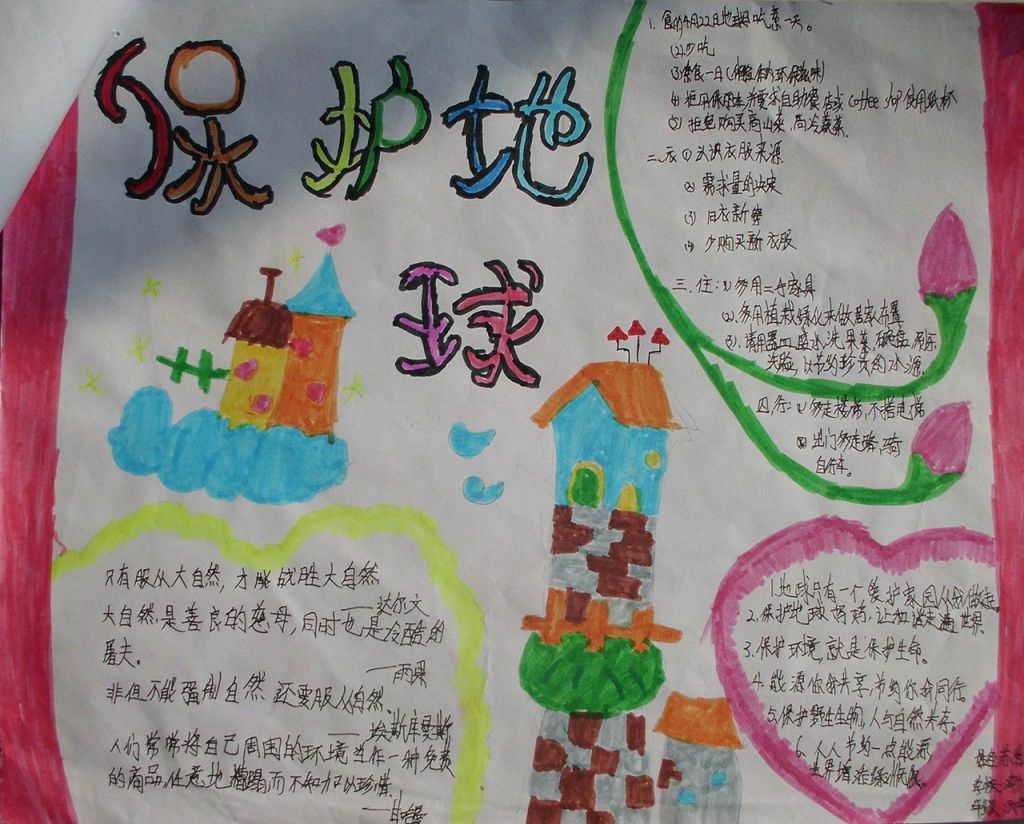 保护地
球
1. 食的4月22日地球日吃素一天。
(2)少吃
(3)素食一日
(4) 自助餐 店或 coffee 使用纸杯
(5) 拒绝购买高山菜、高冷蔬菜。
二、衣 ① 认识衣服来源
② 需求量的决定
(3) 旧衣新穿
(4) 少购买新衣服
三、住:(1) 多用二手家具
(2). 多用植栽绿化来做居家布置
(3). 请用器皿盛水洗果菜、碗盘、刷牙
洗脸, 以节约珍贵的水源.
四行:(1) 多走楼梯,不搭电梯
② 出门多走路,骑
自行车。
只有服从大自然,才能战胜大自然
——达尔文
大自然是善良的慈母,同时也是冷酷的
屠夫。
——雨果
非但不能强制自然 还要服从自然。
——埃斯库罗斯
人们常常将自己周围的环境当作一种免费
的商品,任意地糟蹋而不知加以珍惜。
——甘哈曼
1.地球只有一个,爱护家园从我做起.
2.保护地球妈妈,让 走遍世界
3.保护环境,就是保护生命。
4.能源你我共享,节约你我同行.
5.保护野生生物,人与自然共存.
6. 人人节约一点能源,
世界增添绿